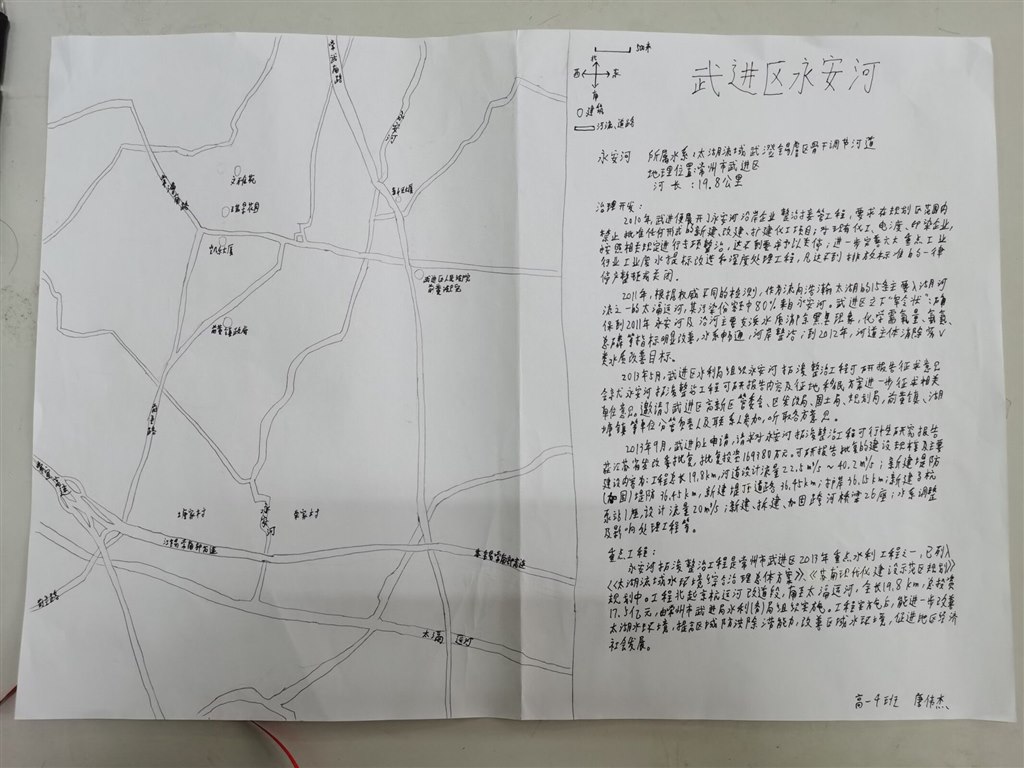 500米
北
西
东
南
建筑
河流、道路
武进区永安河
永安河 所属水系:太湖流域武澄锡虞区骨干调节河道
地理位置:常州市武进区
河长:19.8公里
治理开发:
2010年,武进便展开了永安河沿岸企业整治接管工程,要求在规划区范围内
禁止批准任何形式的新建、改建、扩建化工项目;对现有化工、电渡、印染企业,
按照相关规定进行专项整治,达不到要求予以关停;进一步完善太大重点工业
行业工业废水提标改造和深度处理工程,凡达不到排放标准的一律
停产整顿或关闭。
2011年,根据权威不同的检测,作为流向浩瀚太湖的15条主要入湖河
流之一的太滆运河,其污染估算中80%来自永安河。武进区立下"军令状":确
保到2011年永安河及沿河主要支浜水质消除黑臭现象,化学需氧量、氨氮、
总磷等指标明显改善,水系畅通,河岸整洁;到2012年,河道主体消除劣V
类水质改善目标。
2013年5月,武进区水利局组织永安河拓浚整治工程可研报告征求意见
会
永安河拓浚整治工程可研报告内容及征地移民方案进一步征求相关
单位意见。邀请了武进区高新区管委会、区发改局、国土局、规划局,前黄镇、湖
塘镇等单位分管负责人及联系人参加,听取各方意见。
2013年9月,武进向上申请,请求对永安河拓浚整治工程可行性研究报告
获江苏省发改委批复,批复投资169380万元。可研报告批复的建设规模及主要
建设内容为:工程总长19.8km,河道设计流量22.5m³/s~40.2m³/s;新建堤防
(加固)堤防36.45km,新建堤顶道路36.45km;护岸36.15km;新建
泵站1座,设计流量20m³/s;新建、拆建、加固跨河桥梁25座;水系调整
及影响处理工程等。
重点工程:
永安河拓浚整治工程是常州市武进区2013年重点水利工程之一,已列入
《太湖流域水环境综合治理总体方案》、《苏南现代化建设示范区规划》
规划中。工程北起京杭运河改道段,南至太滆运河,全长19.8km,总投资
17.5亿元,由常州市武进区水利(务)局组织实施。工程实施后,能进一步改善
太湖水环境,提高区域防洪除涝能力,改善区域水环境,促进地区经济
社会发展。
高一4班 唐伟杰
常武南路
永安河
武进区人民法院
前黄法庭
前黄镇政府
前黄路
永安河
太滆 运河